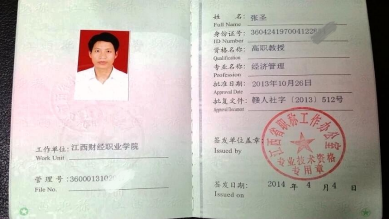 工作单位：江西财经职业学院
Work Unit
管理号：
File No.
姓 名：张圣
Full Name
身份证号：
ID Number
资格名称：高职教授
Qualification
专业名称：经济管理
Profession
批准日期：2013年10月26日
Approval Date
批复文件：赣人社字〔2013〕512号
Approval Document
签发单位盖章：
Issued by
江西省职称工作办公室
专业技术资格
专用章
签发日期：2014年4月4日
Issued on